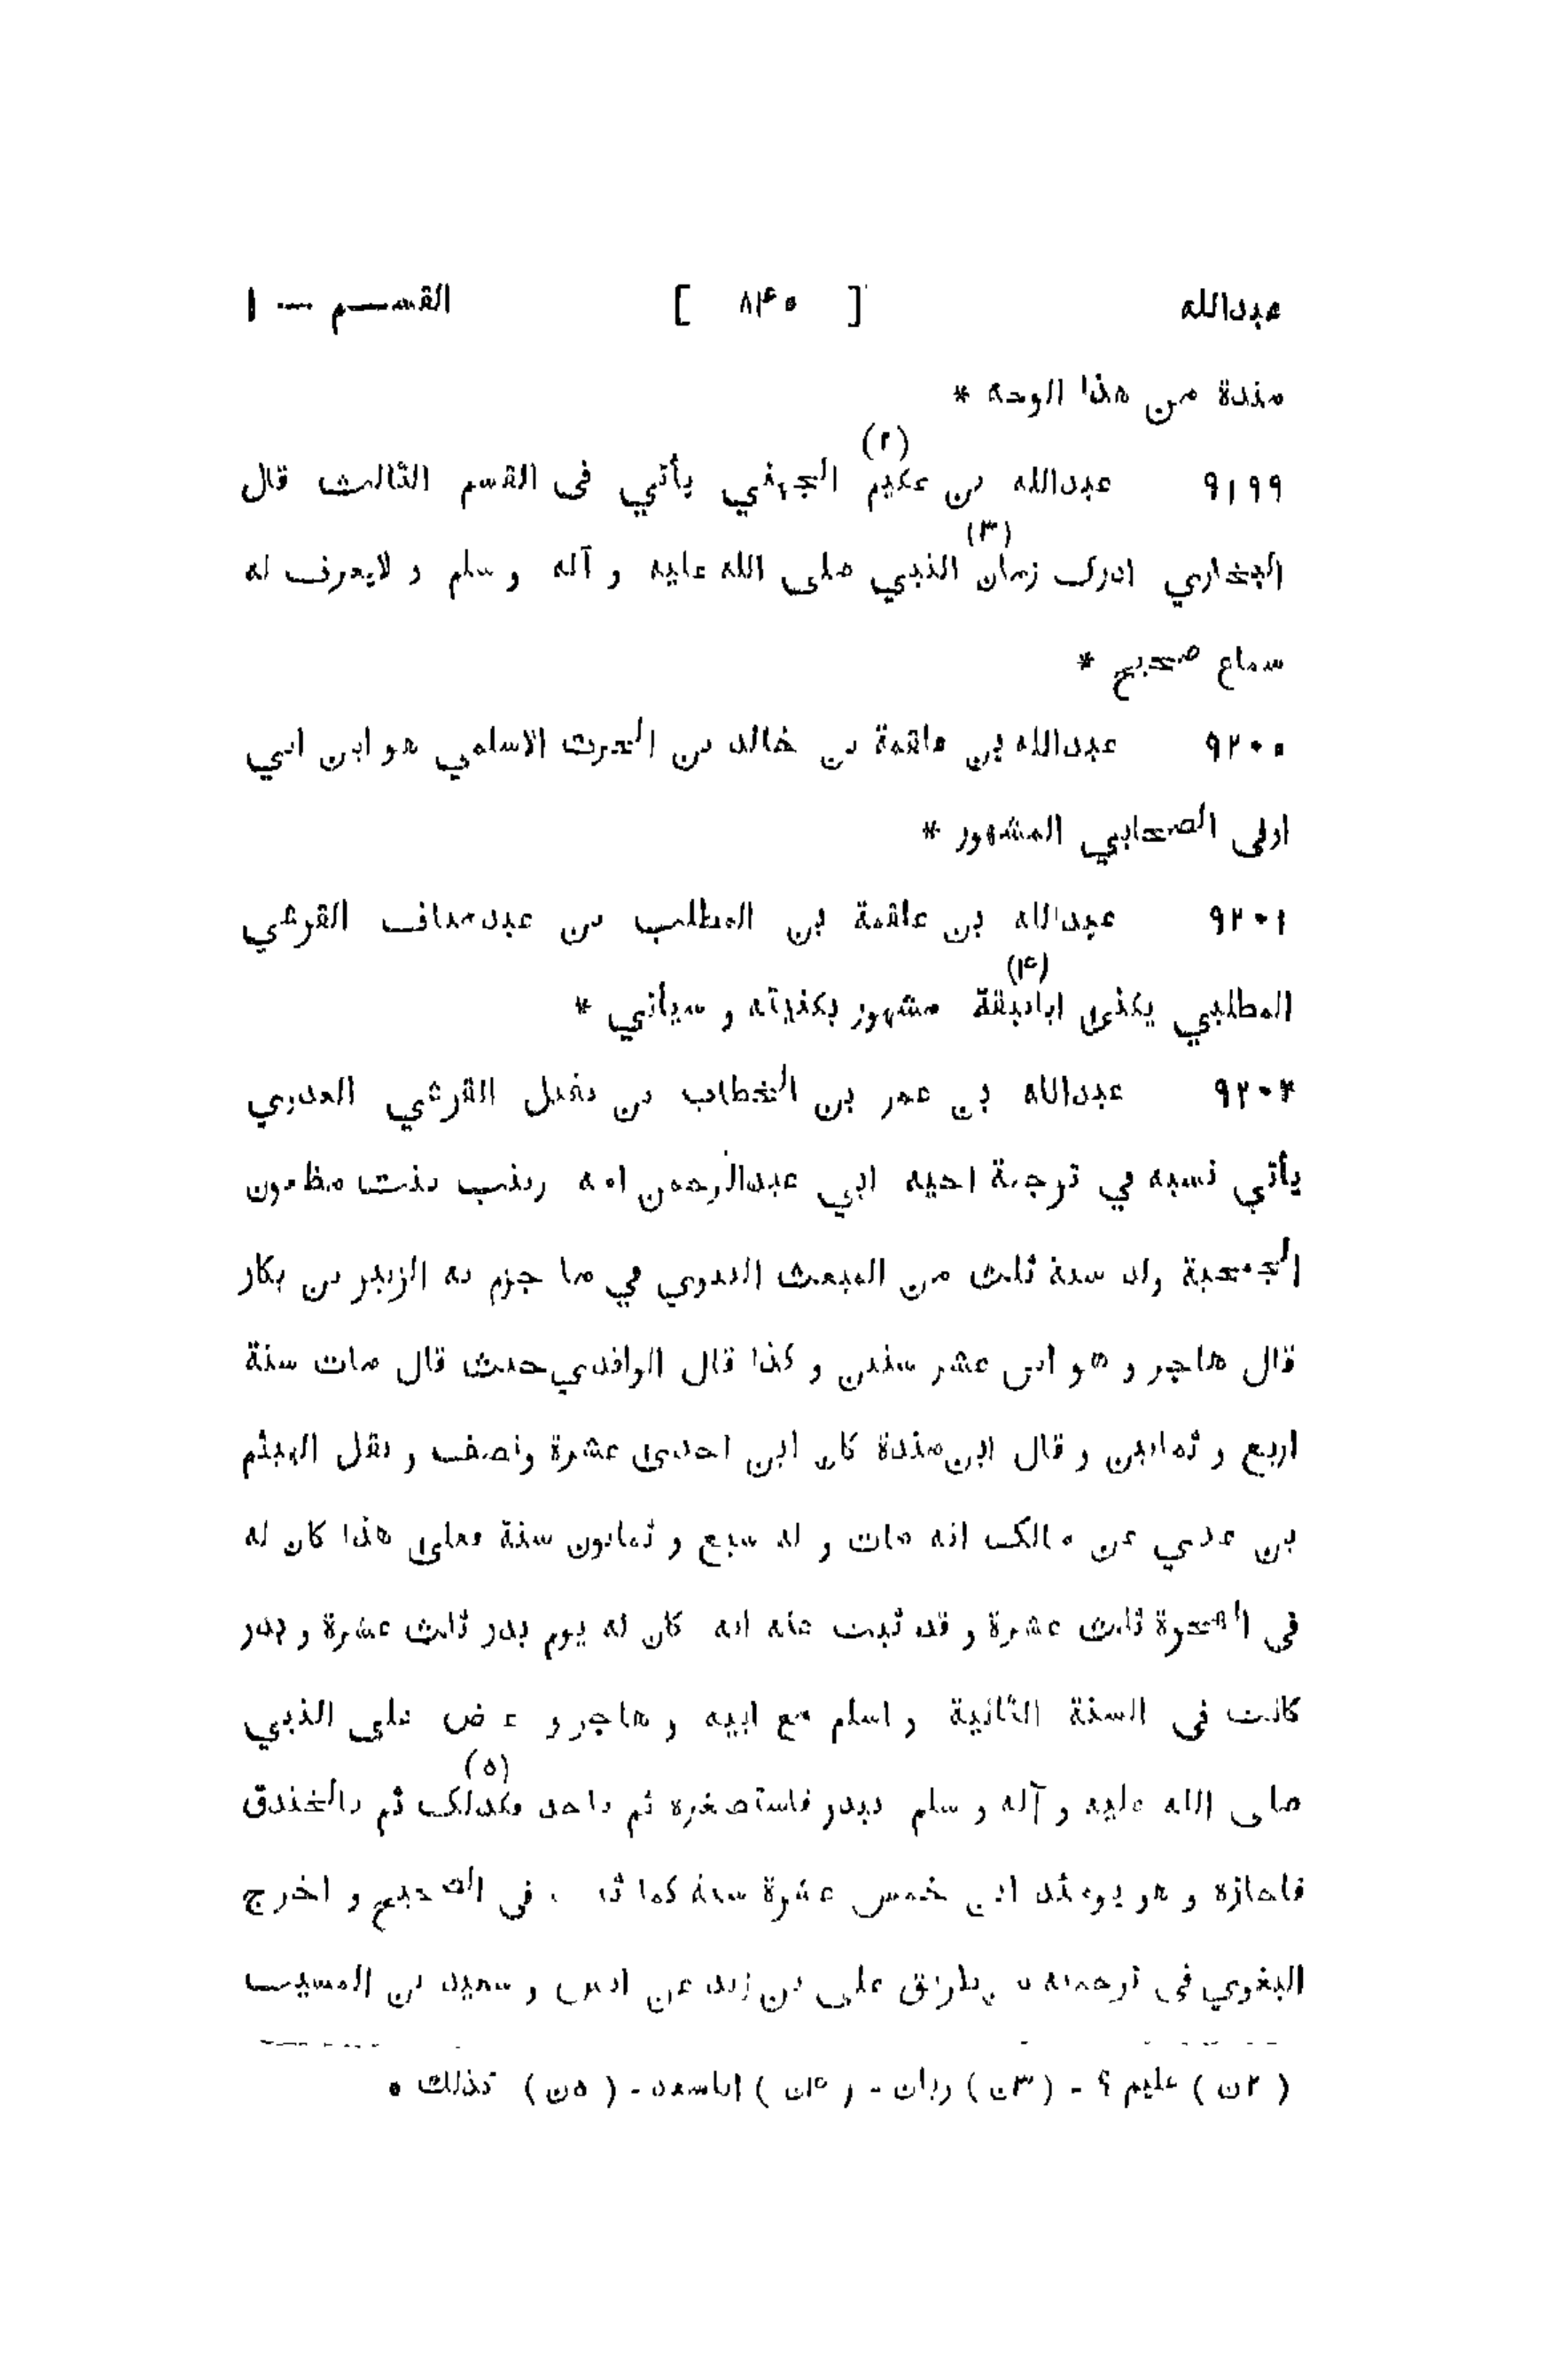 عبدالله [ ٨۴٠ ] القسـم — ١
مندة من هذا الوجه *
٩١٩٩ عبدالله بن عكيم (٢) الجهني يأتي فى القسم الثالث قال
البخاري ادرك زمان (٣) النبي صلى الله عليه و آله و سلم و لايعرف له
سماع صحيح *
٩٢٠٠ عبدالله بن علقمة بن خالد بن الحرث الاسلمي هو ابن ابي
اوفى الصحابي المشهور *
٩٢٠١ عبدالله بن علقمة بن المطلب بن عبدمناف القرشي
المطلبي يكنى ابانبقة (۴) مشهور بكنيته و سيأتي *
٩٢٠٢ عبدالله بن عمر بن الخطاب بن نفيل القرشي العدوي
يأتي نسبه في ترجمة اخيه ابي عبدالرحمن امه زينب بنت مظعون
الجمحية ولد سنة ثلث من المبعث النبوي في ما جزم به الزبير بن بكار
قال هاجر و هو ابن عشر سنين و كذا قال الواقدي حيث قال مات سنة
اربع و ثمانين و قال ابن مندة كان ابن احدى عشرة ونصف و نقل الهيثم
بن عدي عن مالك انه مات و له سبع و ثمانون سنة فعلى هذا كان له
فى الهجرة ثلث عشرة و قد ثبت عنه انه كان له يوم بدر ثلث عشرة و بدر
كانت فى السنة الثانية و اسلم مع ابيه و هاجر و عرض على النبي
صلى الله عليه و آله و سلم ببدر فاستصغره ثم باحد فكذلك (٥) ثم بالخندق
فاجازه و هو يومئذ ابن خمس عشرة سنة كما ثبت فى الصحيح و اخرج
البغوي فى ترجمته بطريق على بن زيد عن انس و سعيد بن المسيب
( ٢ن ) عليم ؟ - ( ٣ن ) ربان - ( ۴ن ) اباسعد - ( ٥ن ) كذلك •